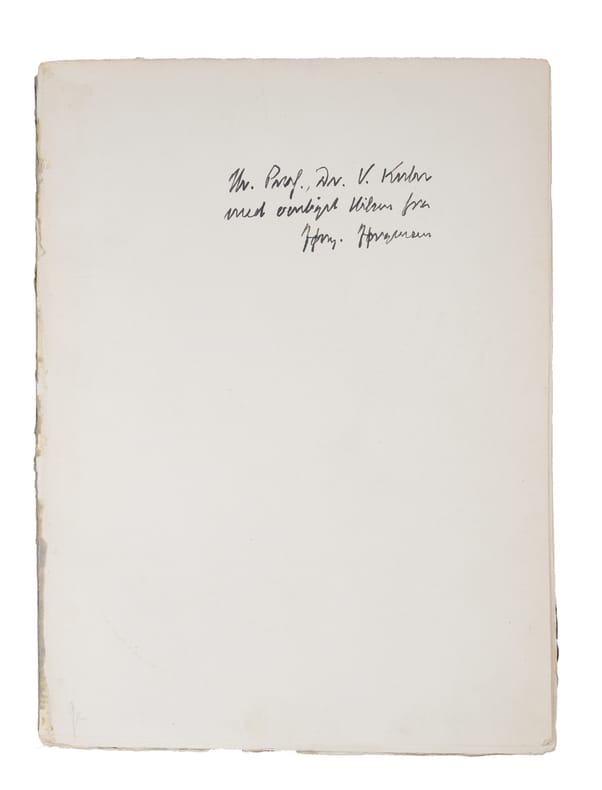 Hr. Prof., Dr. V. Kuhr
med venligst Hilsen fra
Jørg. Jørgensen